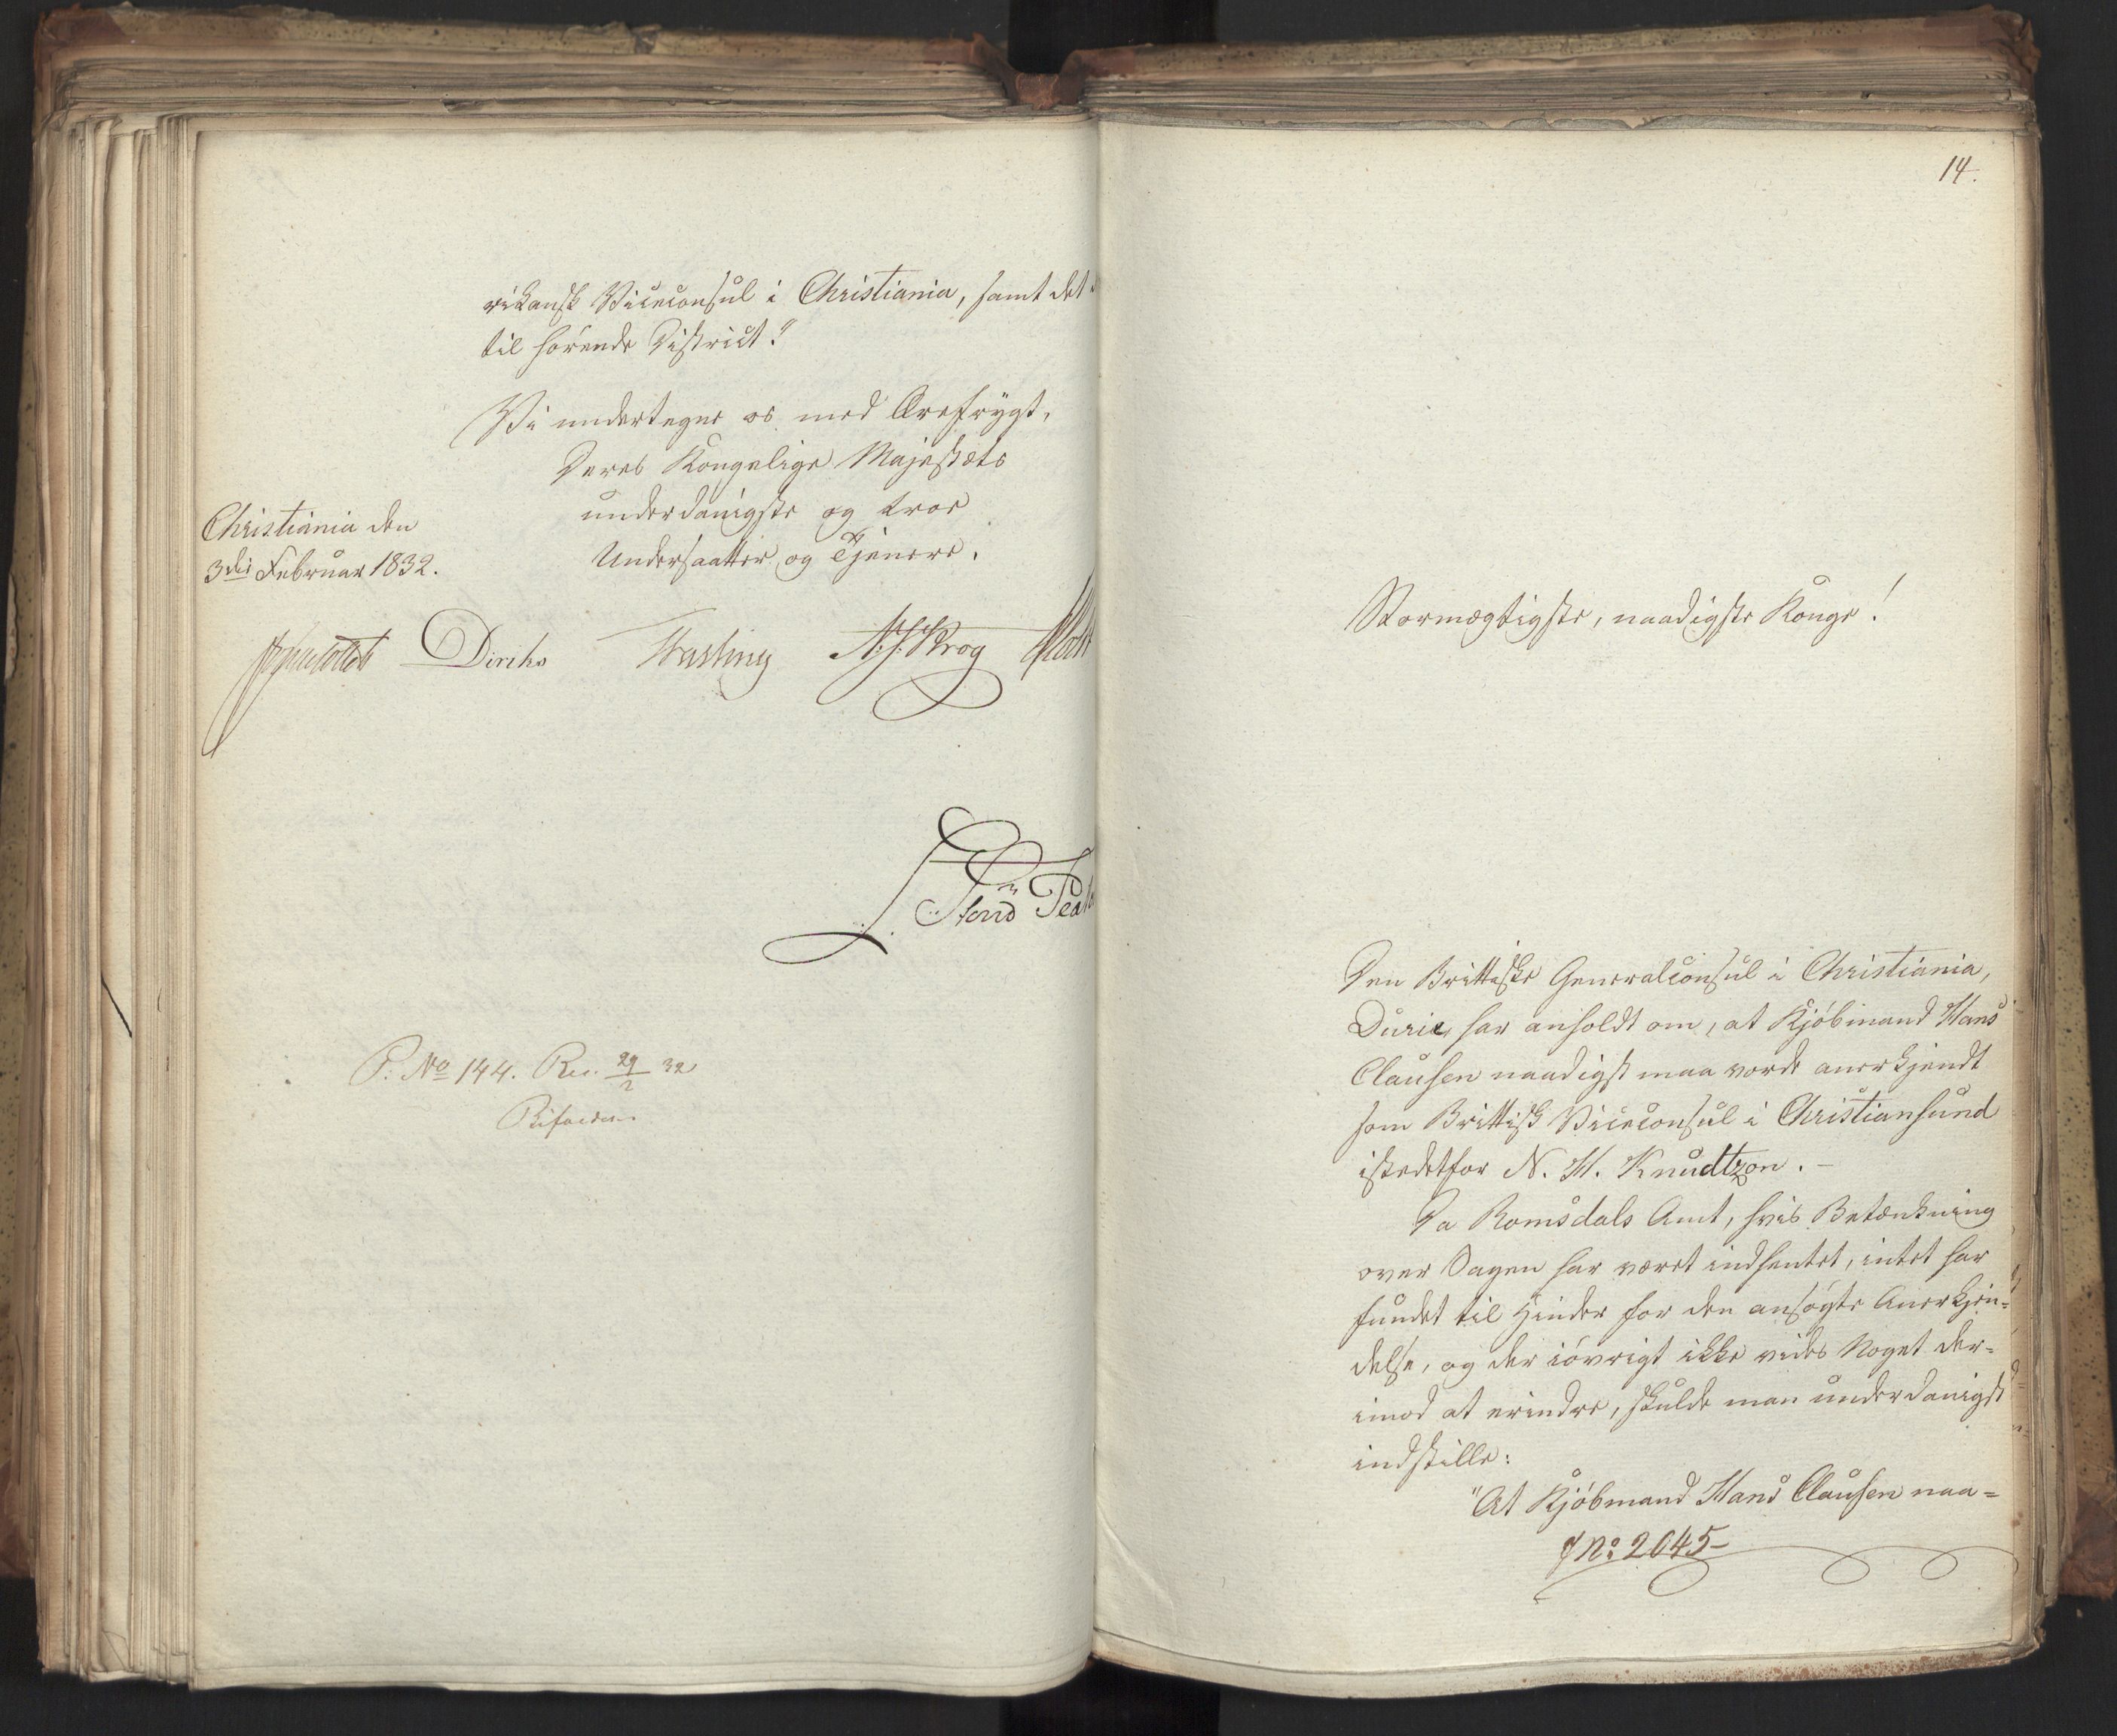 rikansk Viceconsul i Christiania, samt det
til hørende District."
Vi undertegne os med Ærefrygt,
Deres Kongelige Majestæts
underdanigste og troe
Undersaatter og Tjenere.
Christiania den
3die Februar 1832.
Diriks N. J. Krog
P. No 144. Res. 29/2 32
14.
Stormægtigste, naadigste Konge!
Den Brittiske Generalconsul i Christiania,
Durie, har anholdt om, at Kjøbmand Hans
Clausen naadigst maa vorde anerkjendt
som Brittisk Viceconsul i Christiansund
istedetfor N. H. Knudtzon. -
Da Romsdals Amt, hvis Betænkning
over Sagen har været indhentet, intet har
fundet til Hinder for den ansøgte Anerkjen=
delse, og der iøvrigt ikke vides Noget der=
imod at erindre, skulde man underdanigst
indstille:
"At Kjøbmand Hans Clausen naa=
J No: 2045-